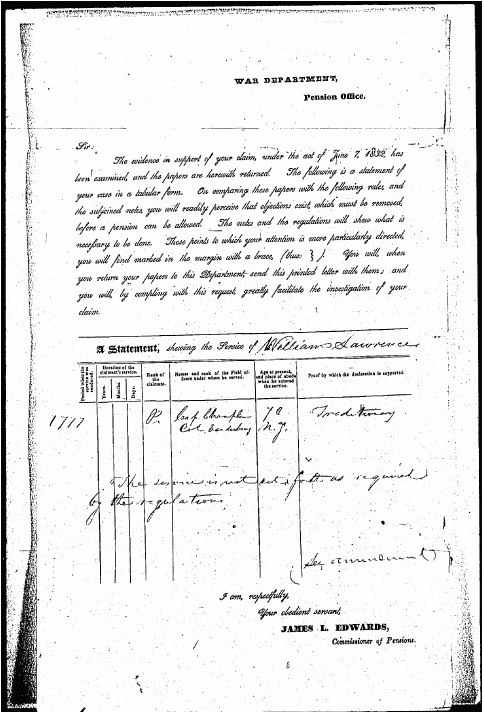 WAR DEPARTMENT,
Pension Office.
Sir:
The evidence in support of your claim, under the act of June 7, 1832, has
been examined, and the papers are herewith returned. The following is a statement of
your case in a tabular form. On comparing these papers with the following rules, and
the subjoined notes, you will readily perceive that objections exist, which must be removed,
before a pension can be allowed. The notes and the regulations will shew what is
necessary to be done. Those points to which your attention is more particularly directed,
you will find marked in the margin with a brace, (thus: } ). You will, when
you return your papers to this Department, send this printed letter with them; and
you will, by complying with this request, greatly facilitate the investigation of your
claim.
A Statement, shewing the Service of William Lawrence
Period when the service was rendered.
Duration of the claimant's service.
Years.
Months.
Days.
Rank of the claimant.
Names and rank of the Field officers under whom he served.
Age at present, and place of abode when he entered the service.
Proof by which the declaration is supported.
1777 P. Cap 70 Traditionary
Col N.J.
The service is not set forth as required
by the regulations.
See amendment
I am, respectfully,
Your obedient servant,
JAMES L. EDWARDS,
Commissioner of Pensions.